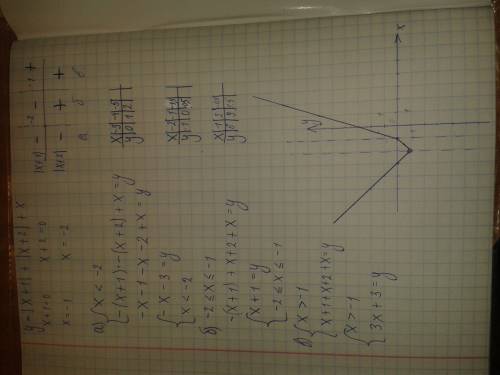 y = |x+1| + |x+2| + x
x+1=0 x+2=0
x=-1 x=-2
-2 -1
|x+1| - - +
|x+2| - + +
а б в
а) { x < -2
{ -(x+1)-(x+2)+x=y
-x-1-x-2+x=y
{ -x-3=y
{ x < -2
б) -2 ≤ x ≤ -1
-(x+1)+x+2+x=y
{ x+1=y
{ -2 ≤ x ≤ -1
в) { x > -1
{ x+1+x+2+x=y
{ x > -1
{ 3x+3=y
y
x